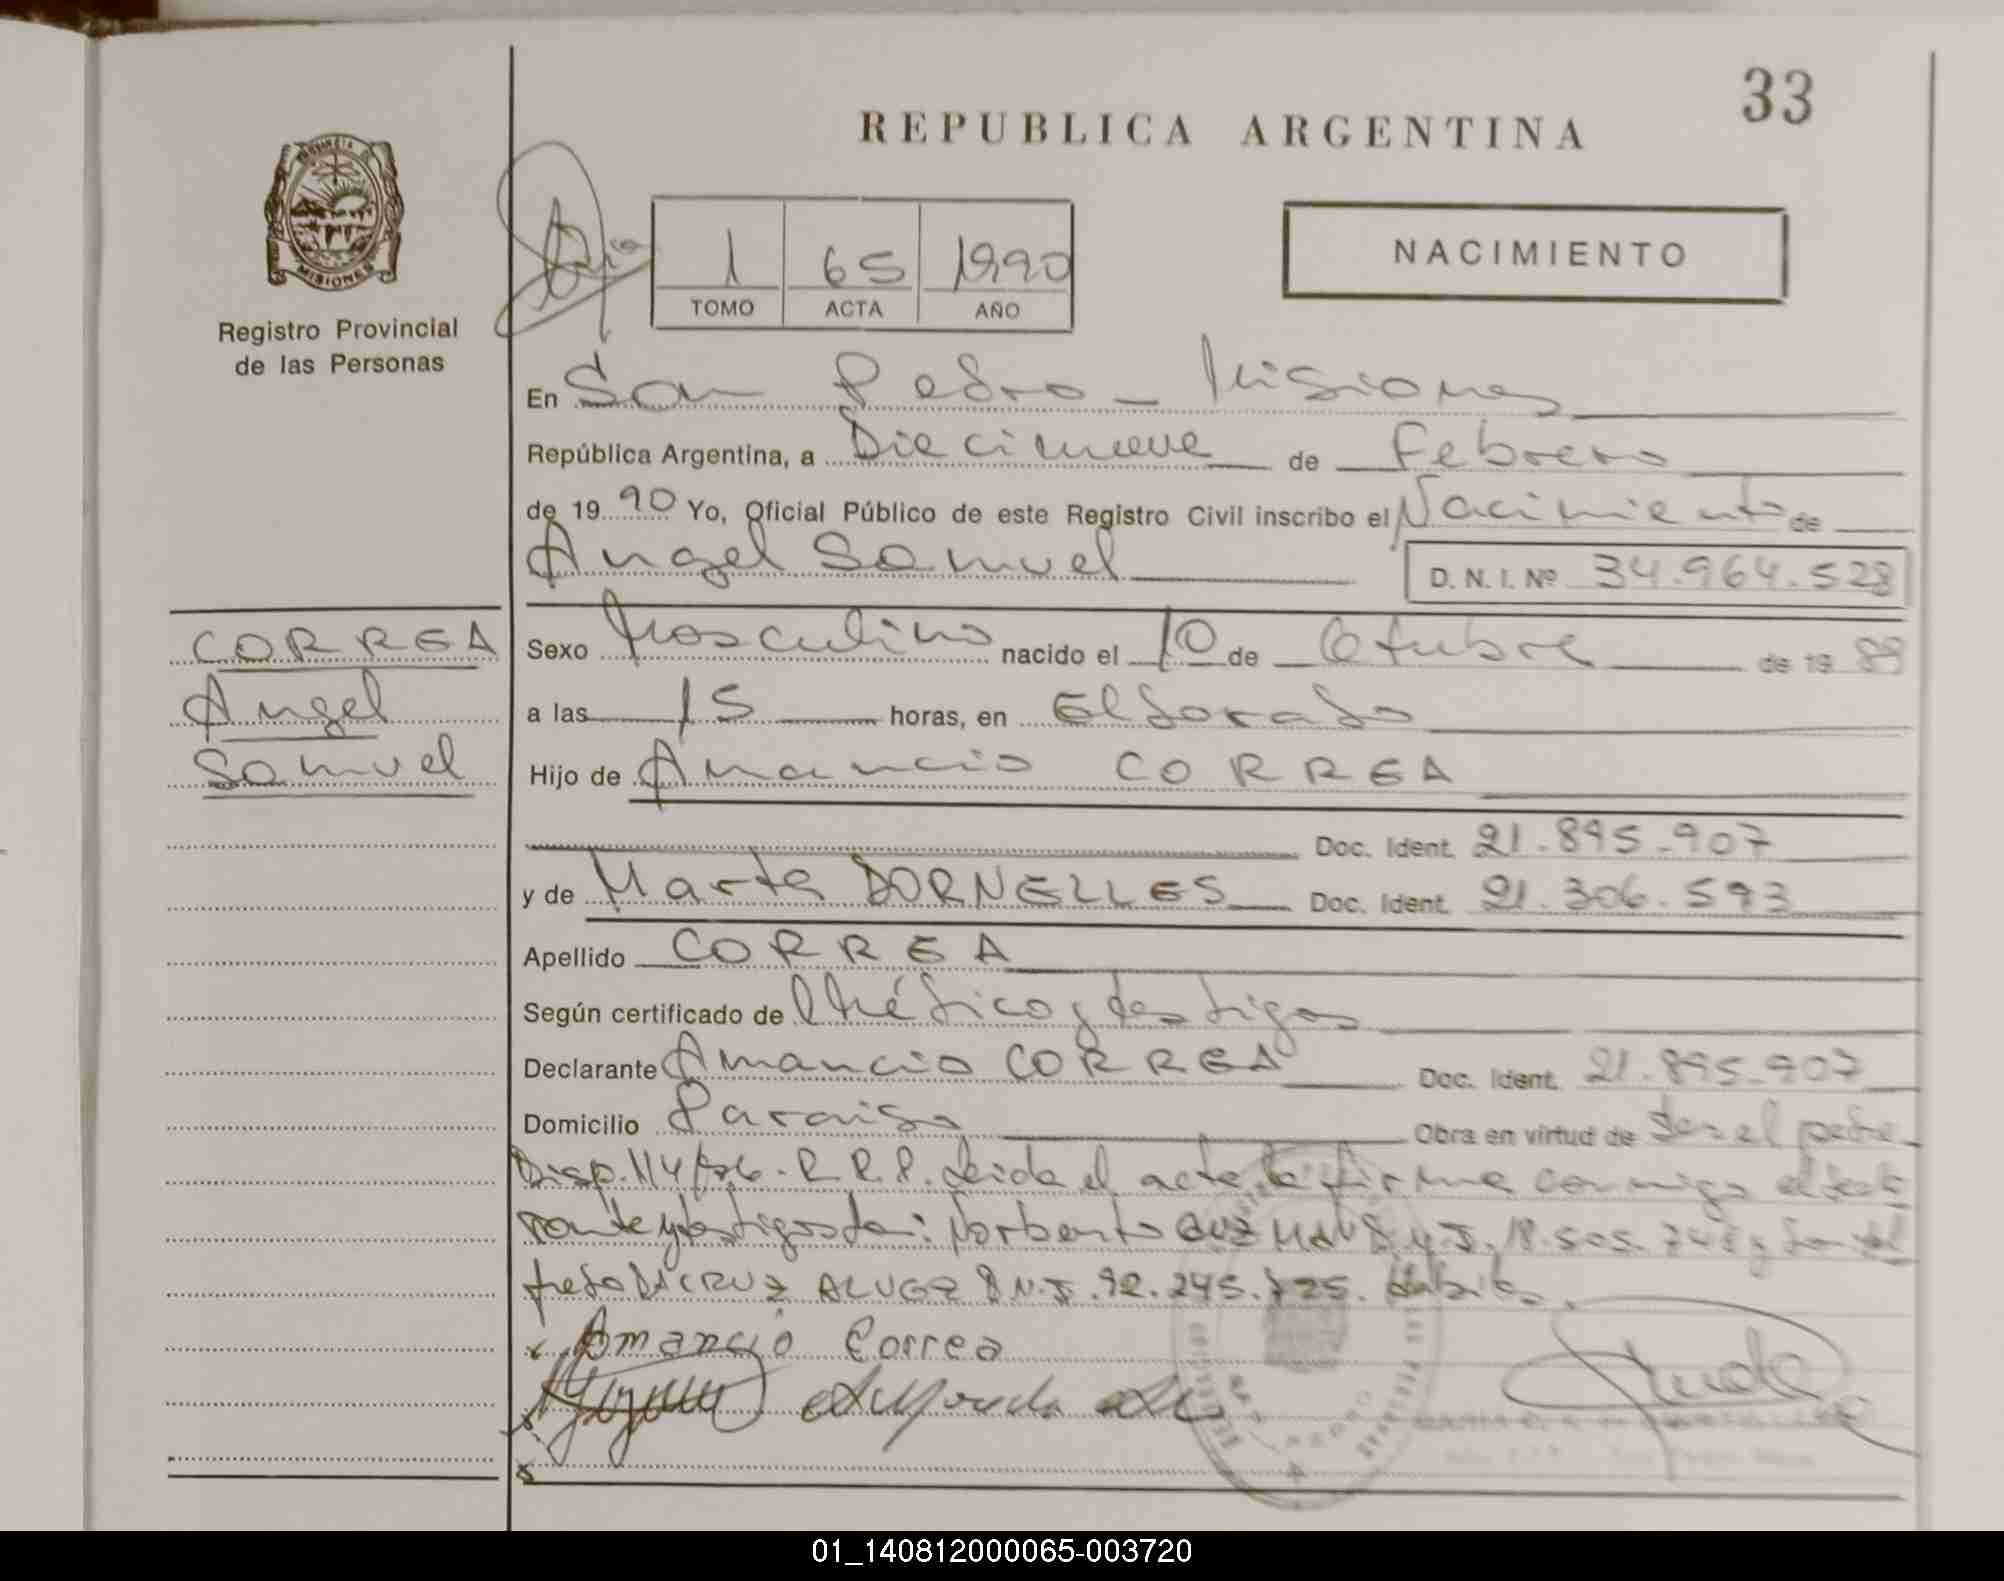 33
REPUBLICA ARGENTINA
PROVINCIA DE
MISIONES
Registro Provincial
de las Personas
1 65 1990
TOMO ACTA AÑO
NACIMIENTO
En San Pedro - Misiones
República Argentina, a Diecinueve de Febrero
de 1990 Yo, Oficial Público de este Registro Civil inscribo el Nacimiento de
Angel Samuel D.N.I. Nº 34.964.528
CORREA
Angel
Samuel
Sexo Masculino nacido el 10 de Octubre de 1989
a las 15 horas, en Eldorado
Hijo de Amancio CORREA
Doc. Ident. 21.895.907
y de Marta DORNELLES Doc. Ident. 21.306.593
Apellido CORREA
Según certificado de Médico y testigos
Declarante Amancio CORREA Doc. Ident. 21.895.907
Domicilio Paraiso Obra en virtud de ser el padre
Disp. 114/86. R.R.P. Leida el acta la firma conmigo el decla
rante y testigos de: Norberto GUZMAN D.N.I. 18.505.748 y
fredo DA CRUZ ALVEZ D.N.I. 92.245.725. Habiles.
Amancio Correa